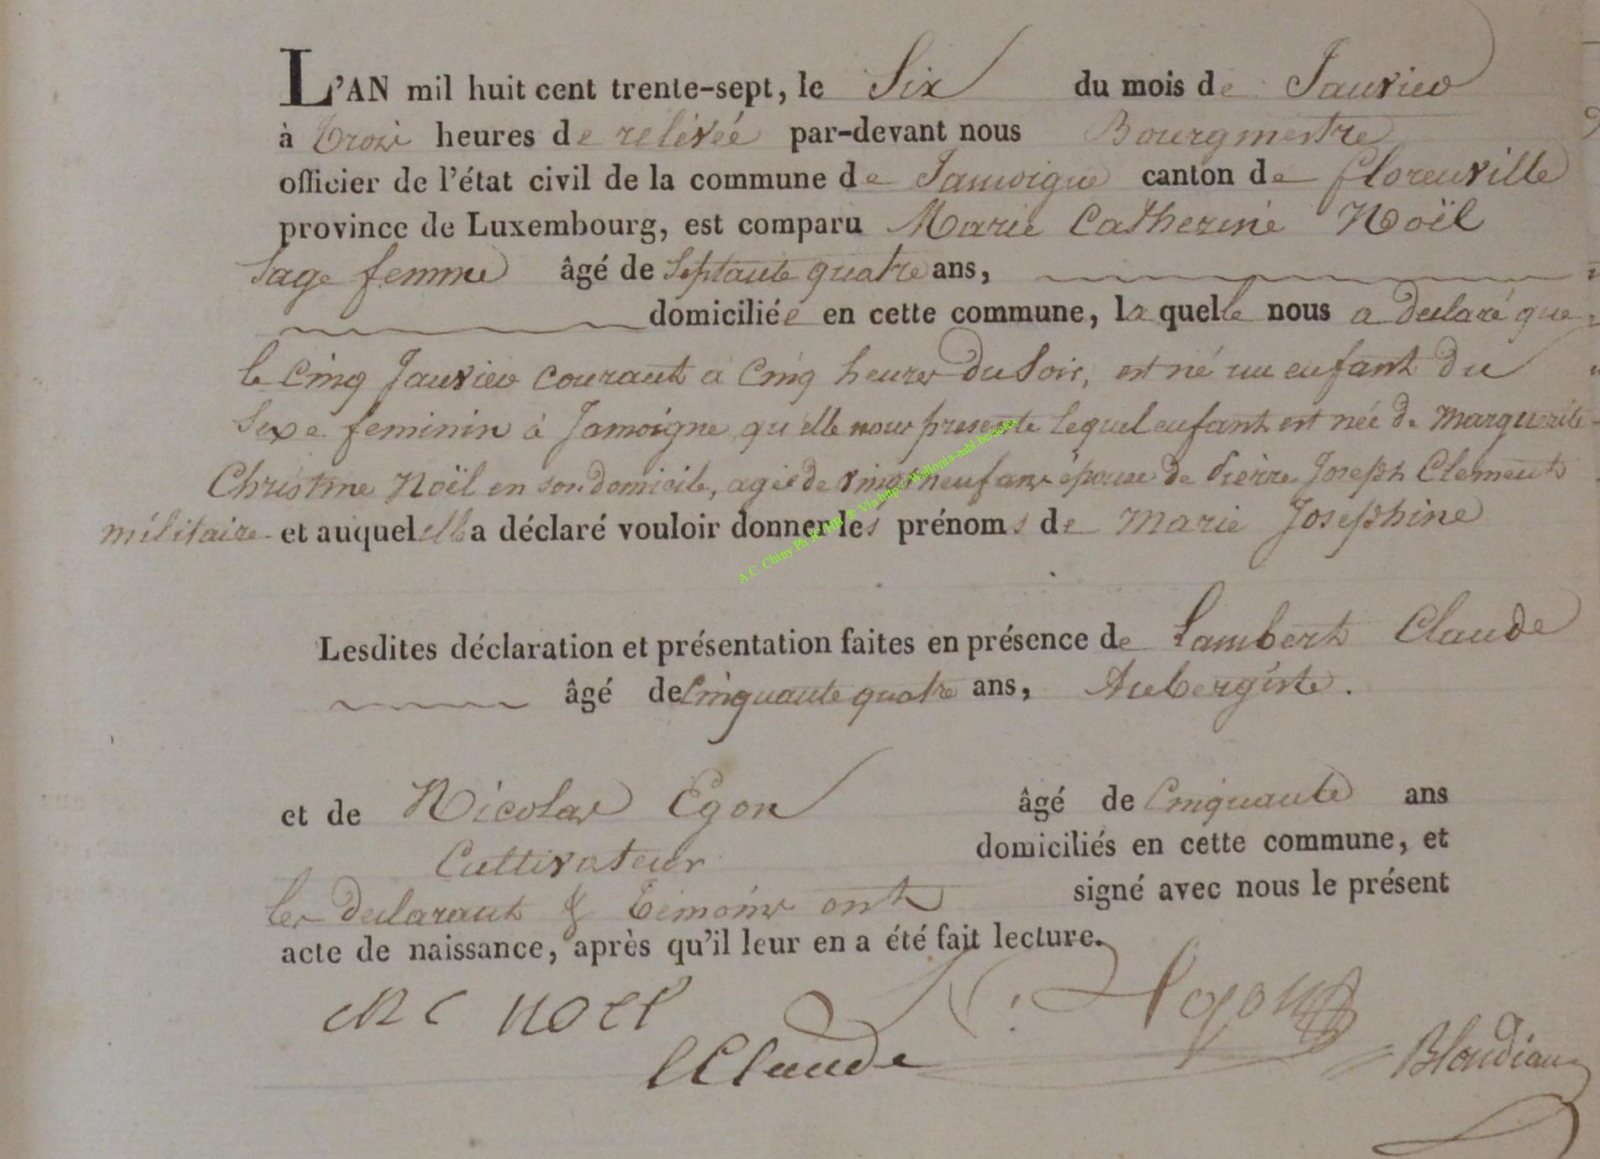 L'AN mil huit cent trente-sept, le Six du mois de Janvier
à trois heures de relévée par-devant nous Bourgmestre
officier de l'état civil de la commune de Jamoigne canton de florenville
province de Luxembourg, est comparu Marie Catherine Noël
Sage femme âgé de Septante quatre ans,
domiciliée en cette commune, la quelle nous a declaré que
le cinq Janvier courant a cinq heures du soir, est né un enfant du
Sexe feminin à Jamoigne qu'elle nous presente lequel enfant est née de Marguerite
Christine Noël en son domicile, agée de vingt neuf ans épouse de Pierre Joseph Clement
militaire et auquel elle a déclaré vouloir donner les prénoms de Marie Josephine
A.C. Chiny Ph
Lesdites déclaration et présentation faites en présence de Lambert Claude
âgé de Cinquante quatre ans, Aubergiste.
et de Nicolas Egon âgé de Cinquante ans
Cultivateur domiciliés en cette commune, et
les declarant & Témoins ont signé avec nous le présent
acte de naissance, après qu'il leur en a été fait lecture.
M C NOEL
LClaude
Blondiau